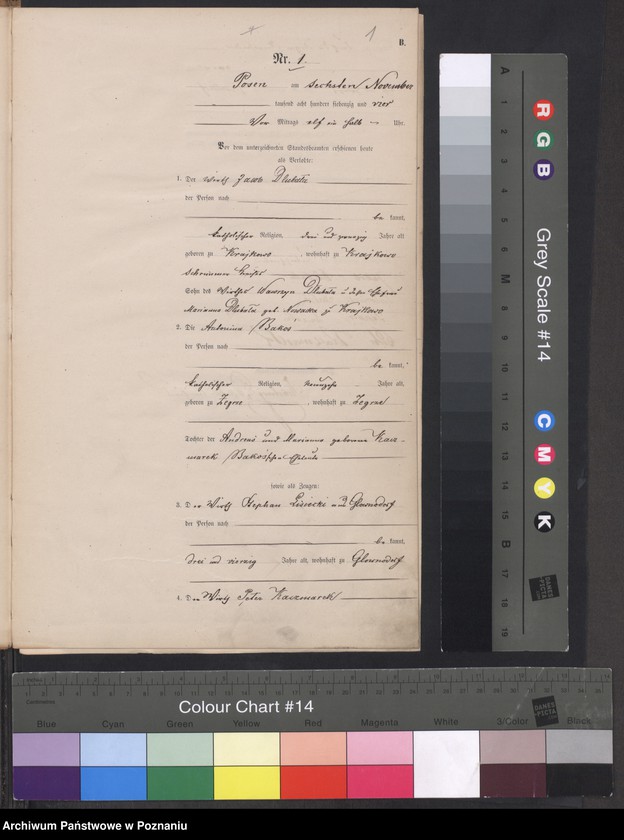 1
B.
Nr. 1
Posen am sechsten November
tausend acht hundert siebenzig und vier
Vor Mittags elf ein halb Uhr.
Vor dem unterzeichneten Standesbeamten erschienen heute
als Verlobte:
1. Der Wirth Jacob
der Person nach
be kannt,
katholischer Religion, drei und zwanzig Jahre alt
geboren zu Krajkowo, wohnhaft zu Krajkowo
Schrimmer Kreises
Sohn des Wirthes Wawrzyn
Marianna geb. Nowacka zu Krajkowo
2. Die Antonina Bakoś
der Person nach
be kannt,
katholischer Religion, neunzehn Jahre alt,
geboren zu Zegrze, wohnhaft zu Zegrze
Tochter der Andreas und Marianna geborene Kacz-
marek Bakoś'schen Eheleute
sowie als Zeugen:
3. Der Wirth Stephan
der Person nach
be kannt,
drei und vierzig Jahre alt, wohnhaft zu
4. Der Wirth Peter Kaczmarek
A
1
2
3
4
5
M
8
9
10
11
12
13
14
15
B
17
18
19
R
G
B
C
M
Y
K
Grey Scale #14
DANES
PICTA
Colour Chart #14
Centimetres
DANES
PICTA
Blue Cyan Green Yellow Red Magenta White 3/Color Black
Archiwum Państwowe w Poznaniu